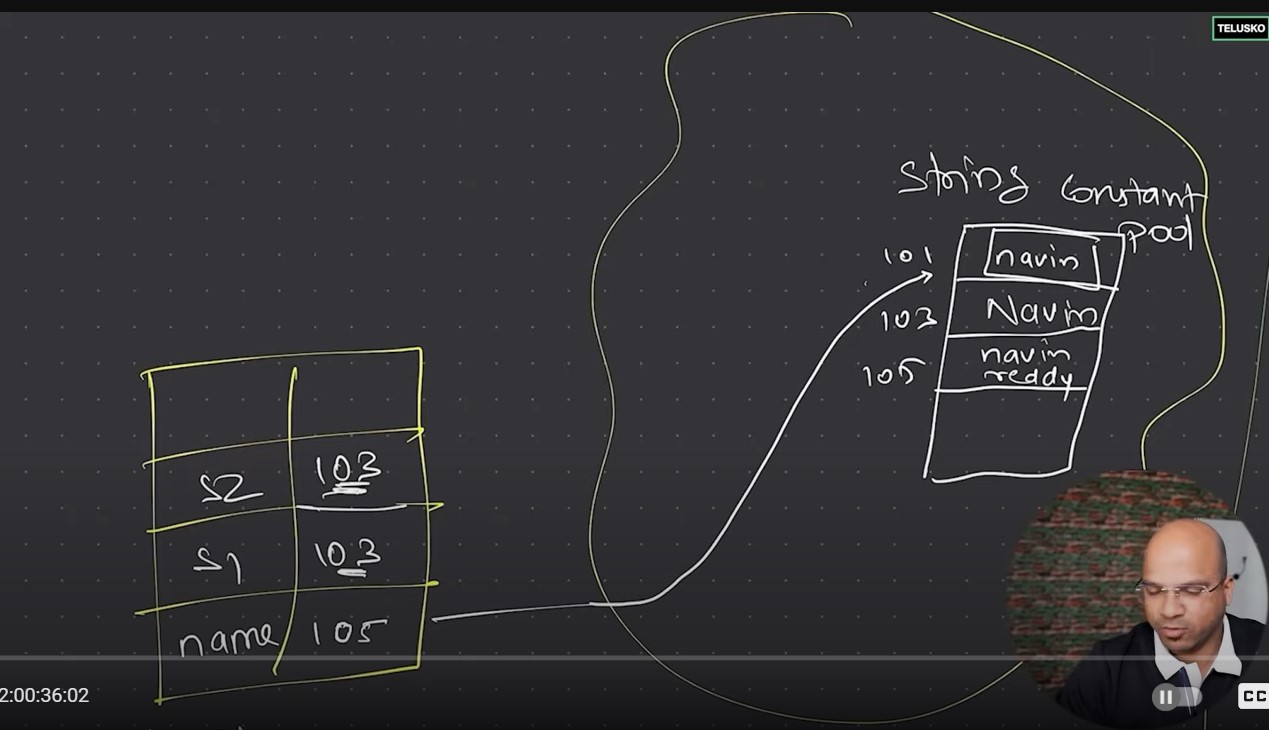 TELUSKO
String Constant
pool
101 navin
103 Navin
105 navin
reddy
S2 103
S1 103
name 105
2:00:36:02
CC